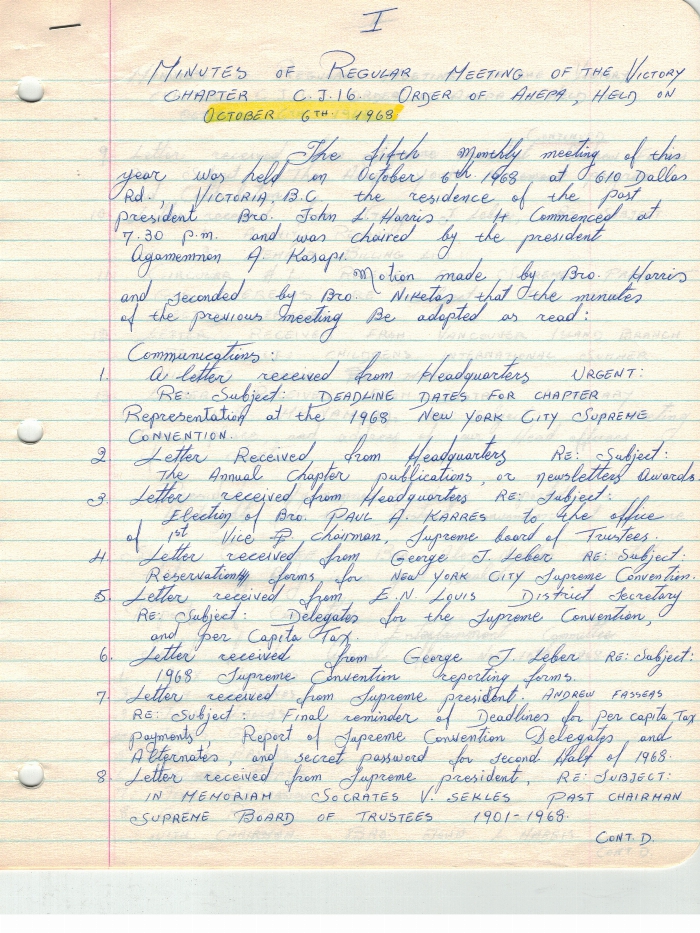 I
MINUTES OF REGULAR MEETING OF THE VICTORY
CHAPTER C.J.16. ORDER OF AHEPA, HELD ON
OCTOBER 6TH 1968
The fifth Monthly meeting of this
year was held on October 6th 1968 at 610 Dallas
Rd., VICTORIA, B.C. the residence of the past
president Bro. John L. Harris It Commenced at
7.30 p.m. and was chaired by the president
Agamemnon A. Kasapi.
Motion made by Bro. Harris
and seconded by Bro. Niketas that the minutes
of the previous meeting Be adopted as read:
Communications:
1. A letter received from Headquarters URGENT:
RE: Subject: DEADLINE DATES FOR CHAPTER
Representation at the 1968 NEW YORK CITY SUPREME
CONVENTION.
2 Letter Received from Headquarters RE: Subject:
The Annual Chapter publications, or newsletters Awards.
3. Letter received from Headquarters RE: Subject:
Election of Bro. PAUL A. KARRES to the office
of 1st Vice Chairman, Supreme board of Trustees.
4 Letter received from George J. Leber RE: Subject:
Reservation forms for NEW YORK CITY Supreme Convention.
5. Letter received from E.N. LOUIS District Secretary
RE: Subject: Delegates for the Supreme Convention,
and per Capita Tax.
6. Letter received from George J. Leber RE: Subject:
1968 Supreme Convention reporting forms.
7. Letter received from Supreme president. ANDREW FASSEAS
RE: Subject: Final reminder of Deadlines for per capita Tax
payments, Report of Supreme Convention Delegates and
Alternates, and secret password for second Half of 1968.
8. Letter received from Supreme president, RE: SUBJECT:
IN MEMORIAM SOCRATES V. SEKLES PAST CHAIRMAN
SUPREME BOARD OF TRUSTEES 1901-1968.
CONT. D.